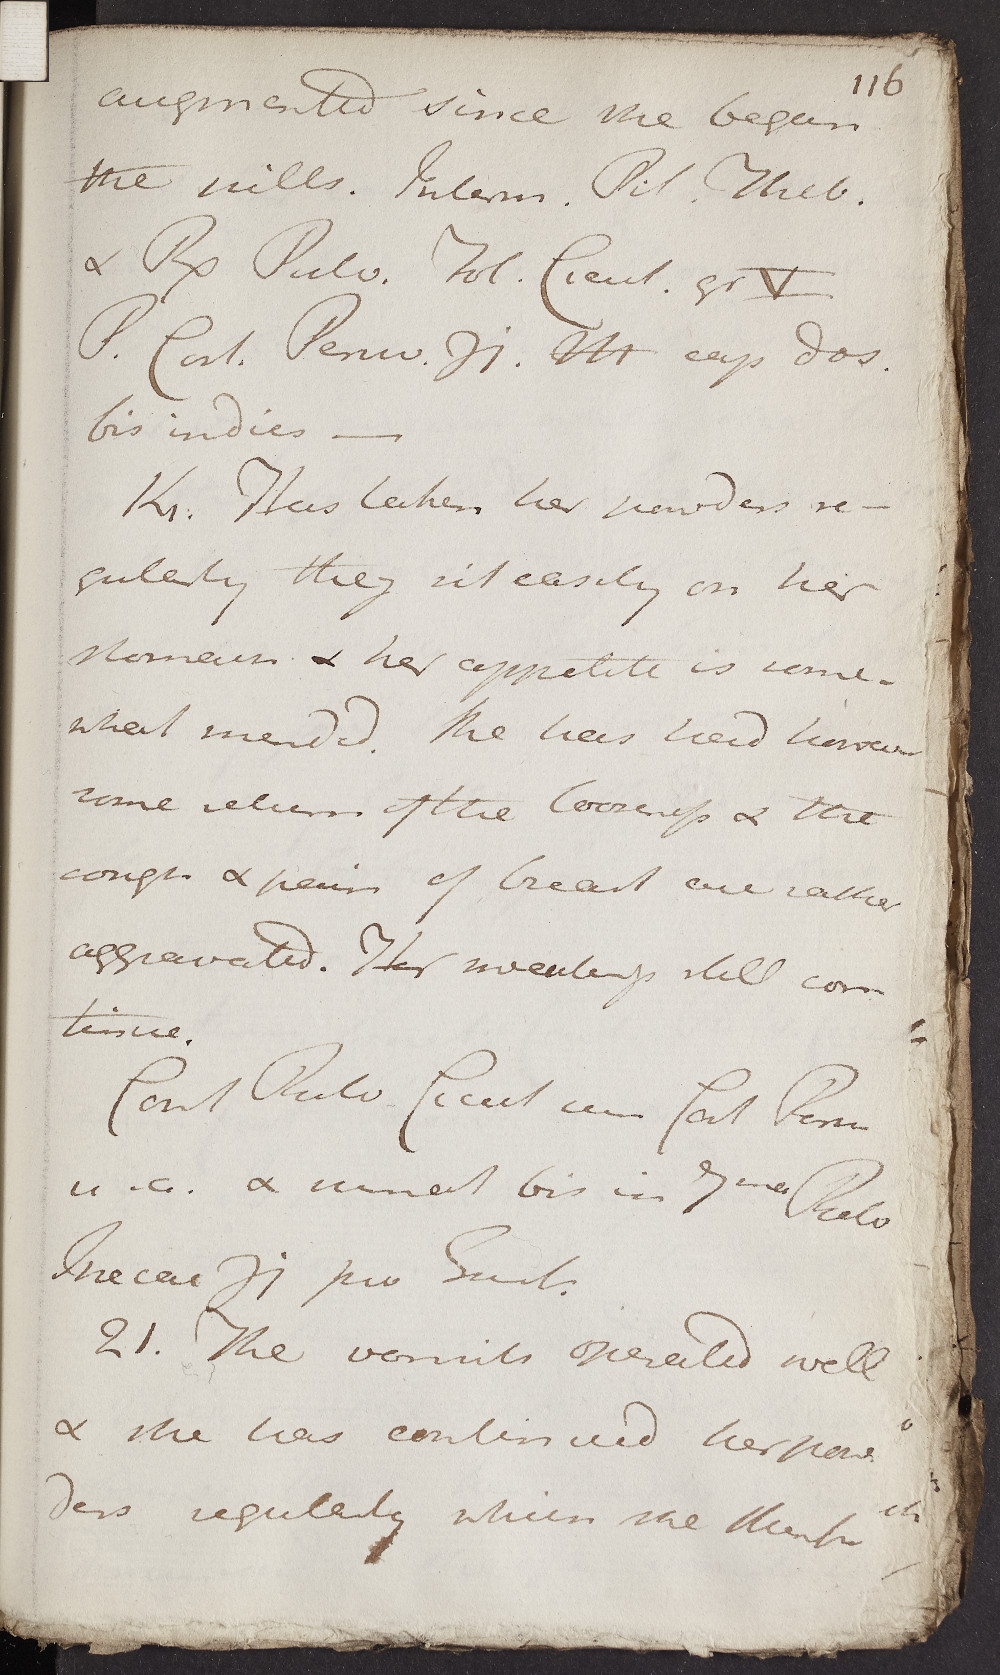 116
augmented since she began
the pills. Interm. Pil. Theb.
& Rx Pulv. Fol. Cicut. gr V
P. Cort. Peruv. ʒj. M cap dos.
bis indies —
19. Has taken her powders re-
gularly they sit easily on her
stomach & her appetite is some-
what mended. She has had however
some return of the looseness & the
cough & pain of breast are rather
aggravated. Her sweatings still con
tinue.
Cont Pulv Cicut cum Cort Peruv
u. a. & sumat bis in 7mna Pulv
Ipecac ʒj pro
21. The vomits operated well
& she has continued her pow
ders regularly which she thinks